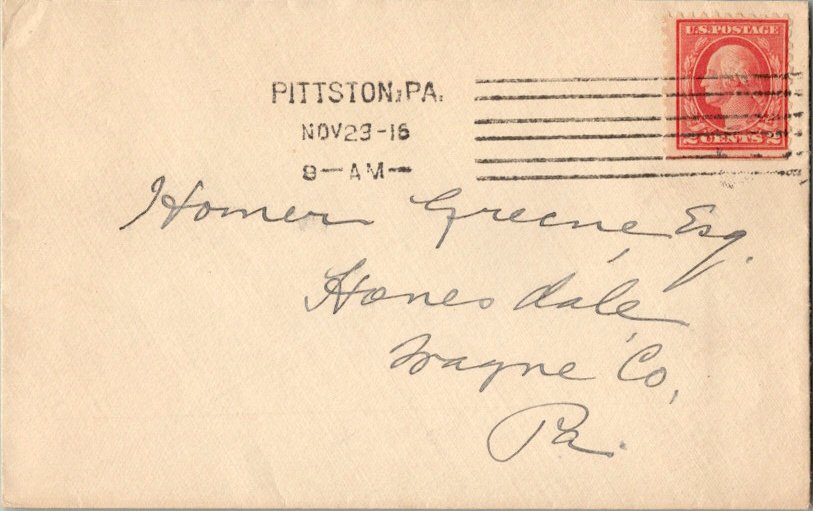 U.S. POSTAGE
2 CENTS 2
PITTSTON, PA.
NOV 23-16
9-AM-
Homer Greene, Esq.
Honesdale,
Wayne Co,
Pa.